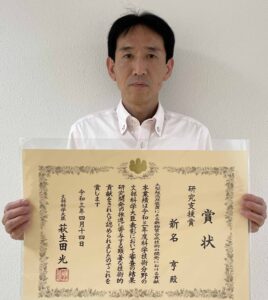 賞状
研究支援賞
新名 亨殿
本業績は令和三年度科学技術分野の
文部科学大臣表彰において審査の結果
研究開発の推進に寄与する顕著な技術的
貢献をされたと認められましたのでこれを
賞します
令和三年四月十四日
文部科学大臣 萩生田光一